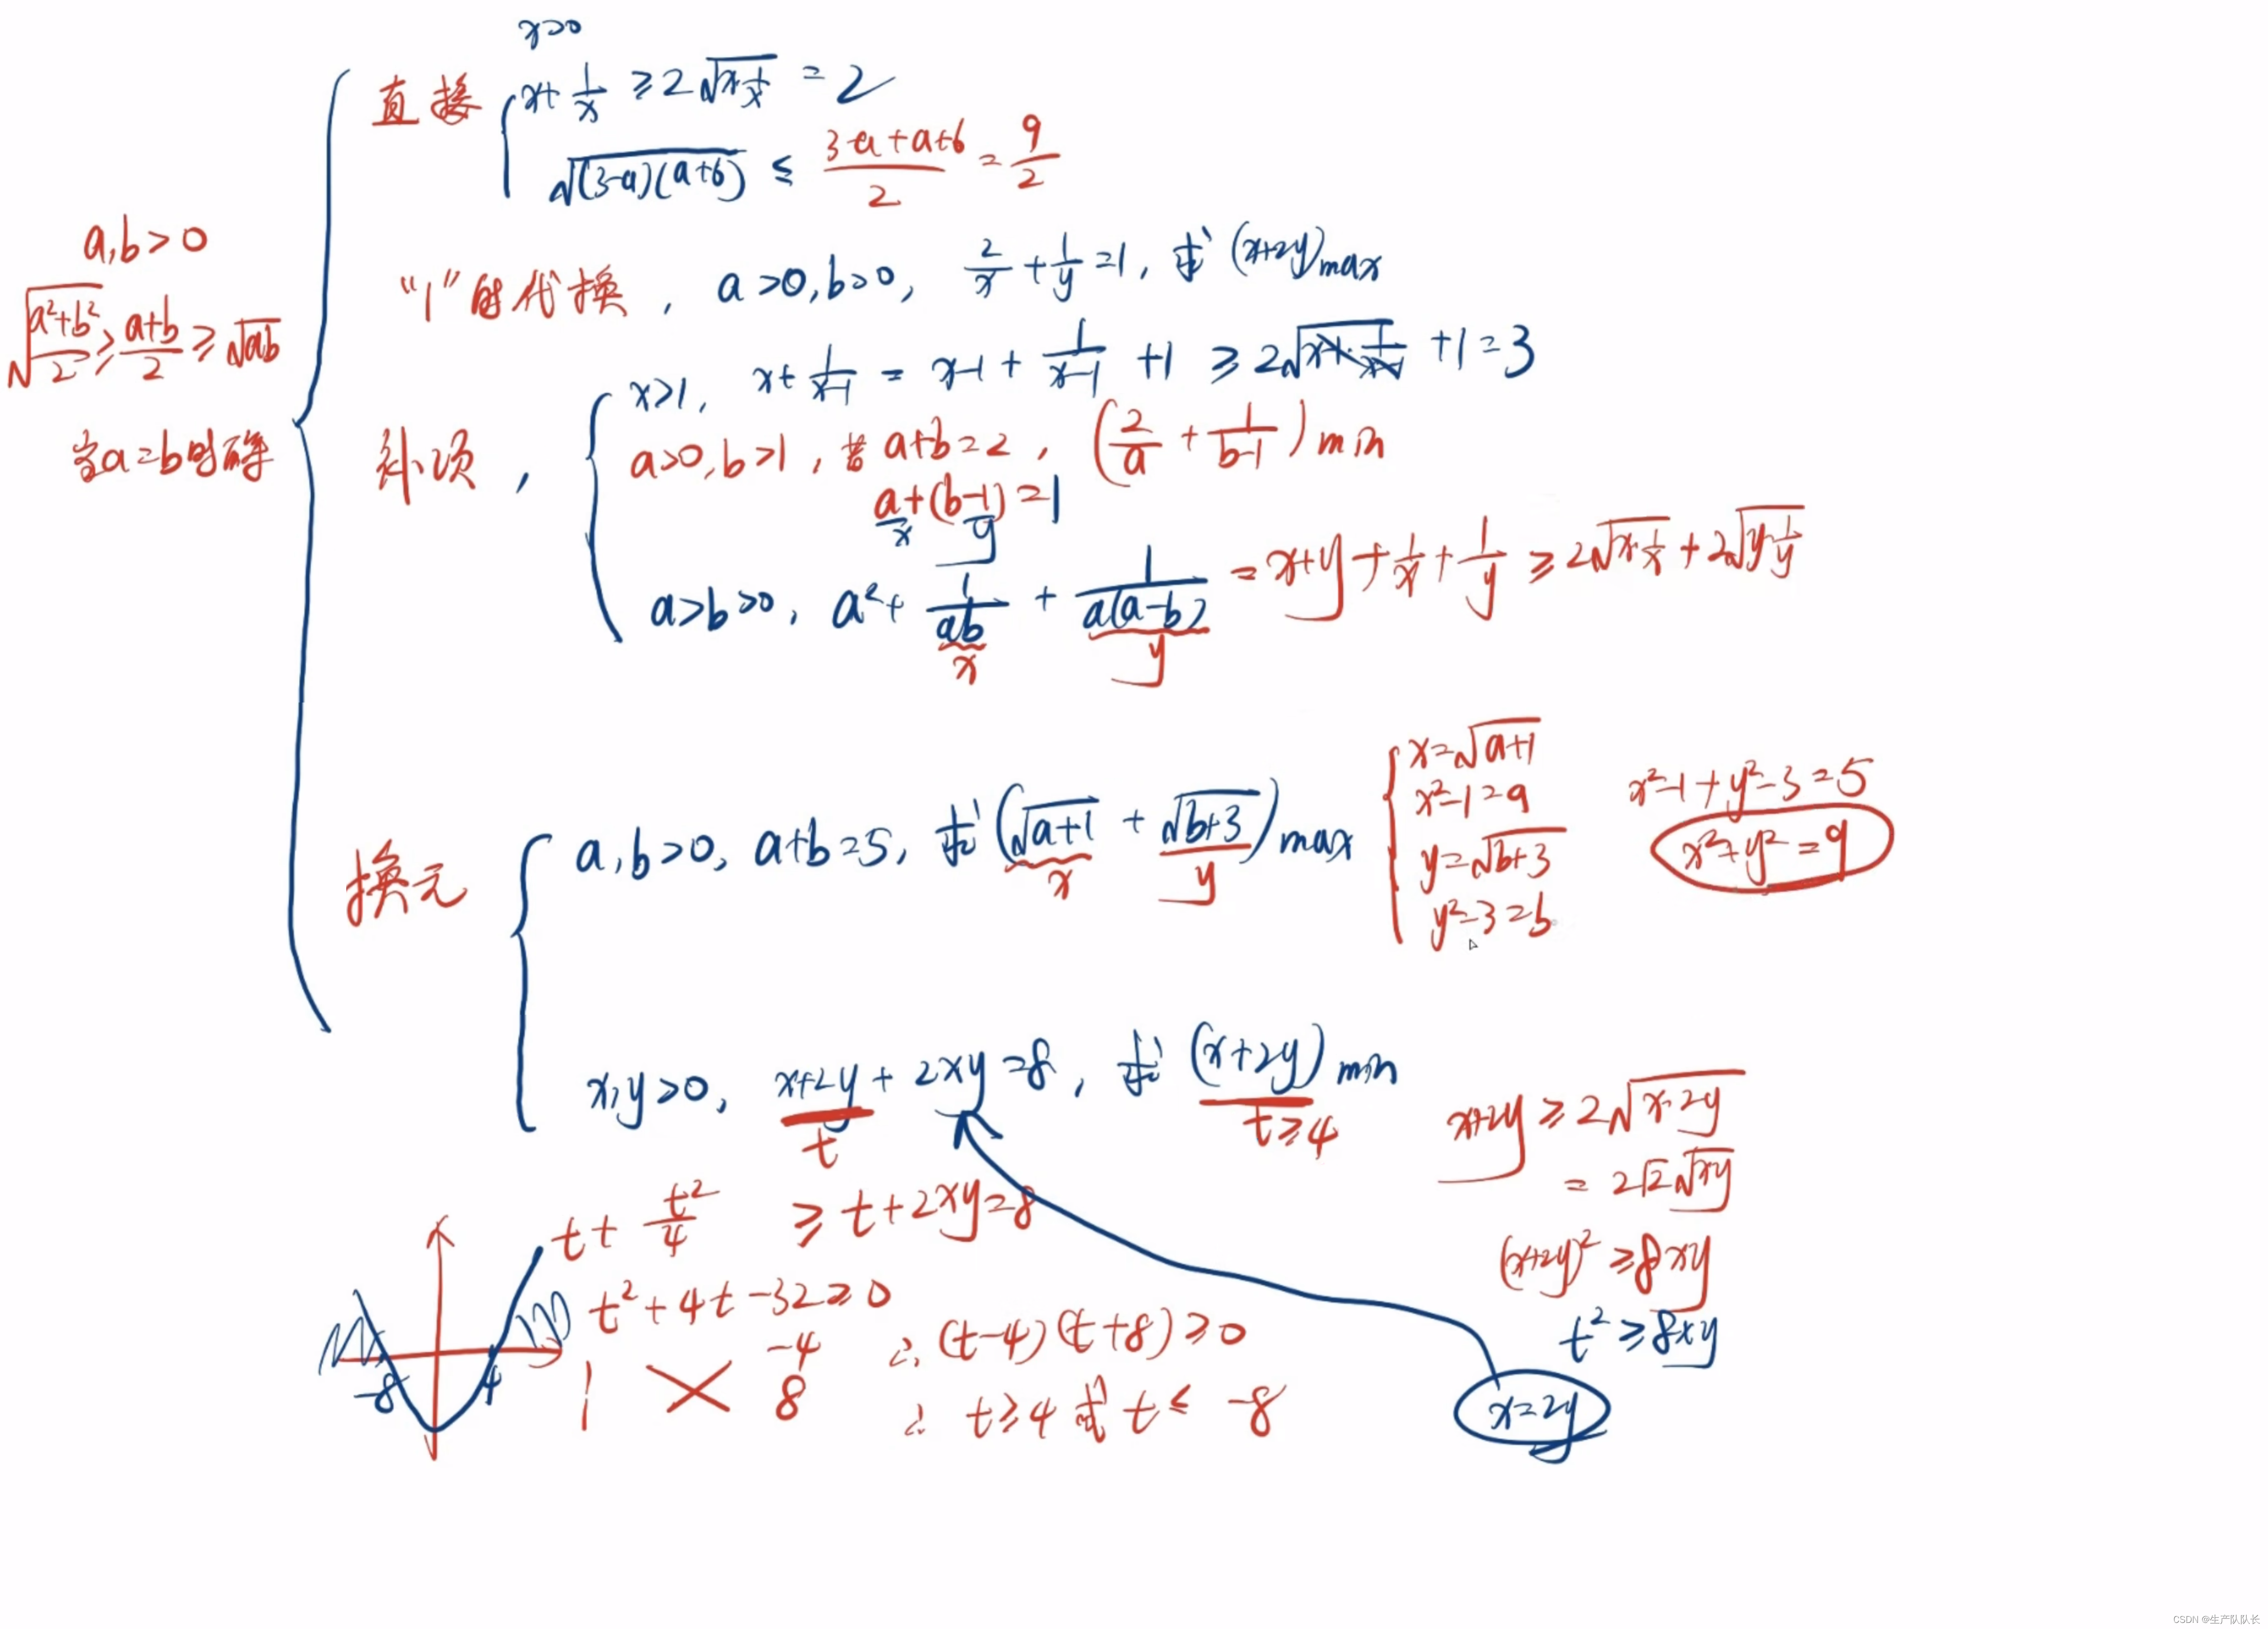 a,b>0
√((a²+b²)/2) ≥ (a+b)/2 ≥ √ab
当a=b时确
直接
x>0
x+1/x ≥ 2√(x·1/x) = 2
√((3-a)(a+6)) ≤ (3-a+a+6)/2 = 9/2
“1”的代换, a>0,b>0, 2/x+1/y=1, 求(x+2y)max
补项,
x>1, x+1/(x-1) = x-1+1/(x-1)+1 ≥ 2√(x-1·1/(x-1))+1=3
a>0,b>1, 若a+b=2, (2/a+1/(b-1))min
a+(b-1)=1
x y
a>b>0, a²+1/ab+1/(a(a-b)) = x+y+1/x+1/y ≥ 2√(x·1/x)+2√(y·1/y)
x y
换元
a,b>0, a+b=5, 求(√(a+1)+√(b+3))max
x y
x=√(a+1)
x²-1=a
y=√(b+3)
y²-3=b
x²-1+y²-3=5
x²+y²=9
x,y>0, x+2y+2xy=8, 求(x+2y)min
t t≥4
x+2y ≥ 2√(x·2y)
= 2√2√xy
(x+2y)² ≥ 8xy
t² ≥ 8xy
x=2y
t+t²/4 ≥ t+2xy=8
t²+4t-32≥0
1 -4
1 8
∴ (t-4)(t+8)≥0
∴ t≥4或t≤-8
-8 4
CSDN @生产队队长